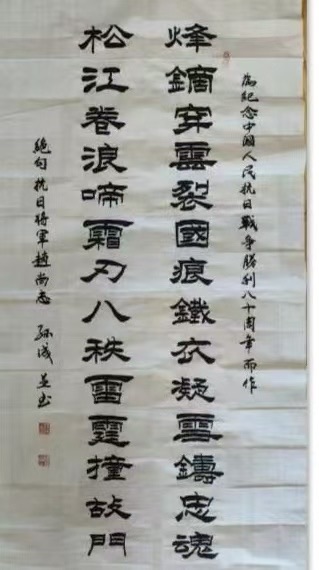 為紀念中國人民抗日戰爭勝利八十周年而作
烽鏑穿雲裂國痕鐵衣凝雪鑄忠魂
松江卷浪啼霜刃八秩雷霆撞故門
絕句抗日將軍趙尚志 孫成並书